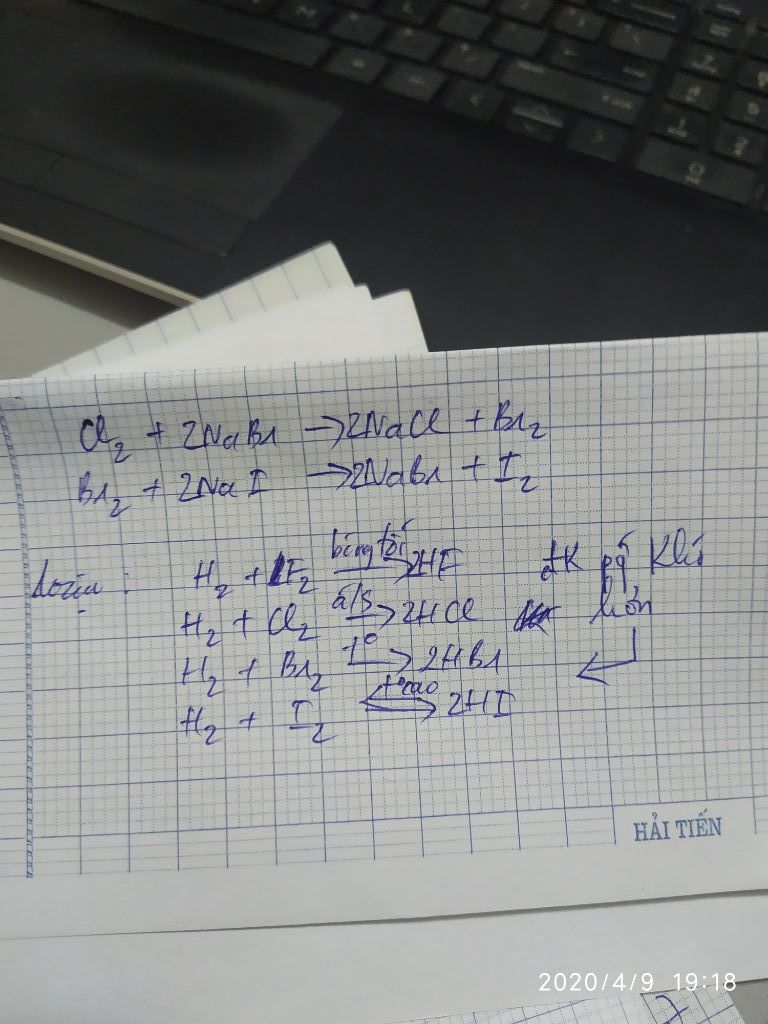 Cl₂ + 2NaBr → 2NaCl + Br₂
Br₂ + 2NaI → 2NaBr + I₂
H₂ + F₂ bóng tối → 2HF đk pứ khó
H₂ + Cl₂ a/s → 2HCl hơn
H₂ + Br₂ t° → 2HBr
H₂ + I₂ t° cao ⇌ 2HI
HẢI TIẾN
2020/4/9 19:18